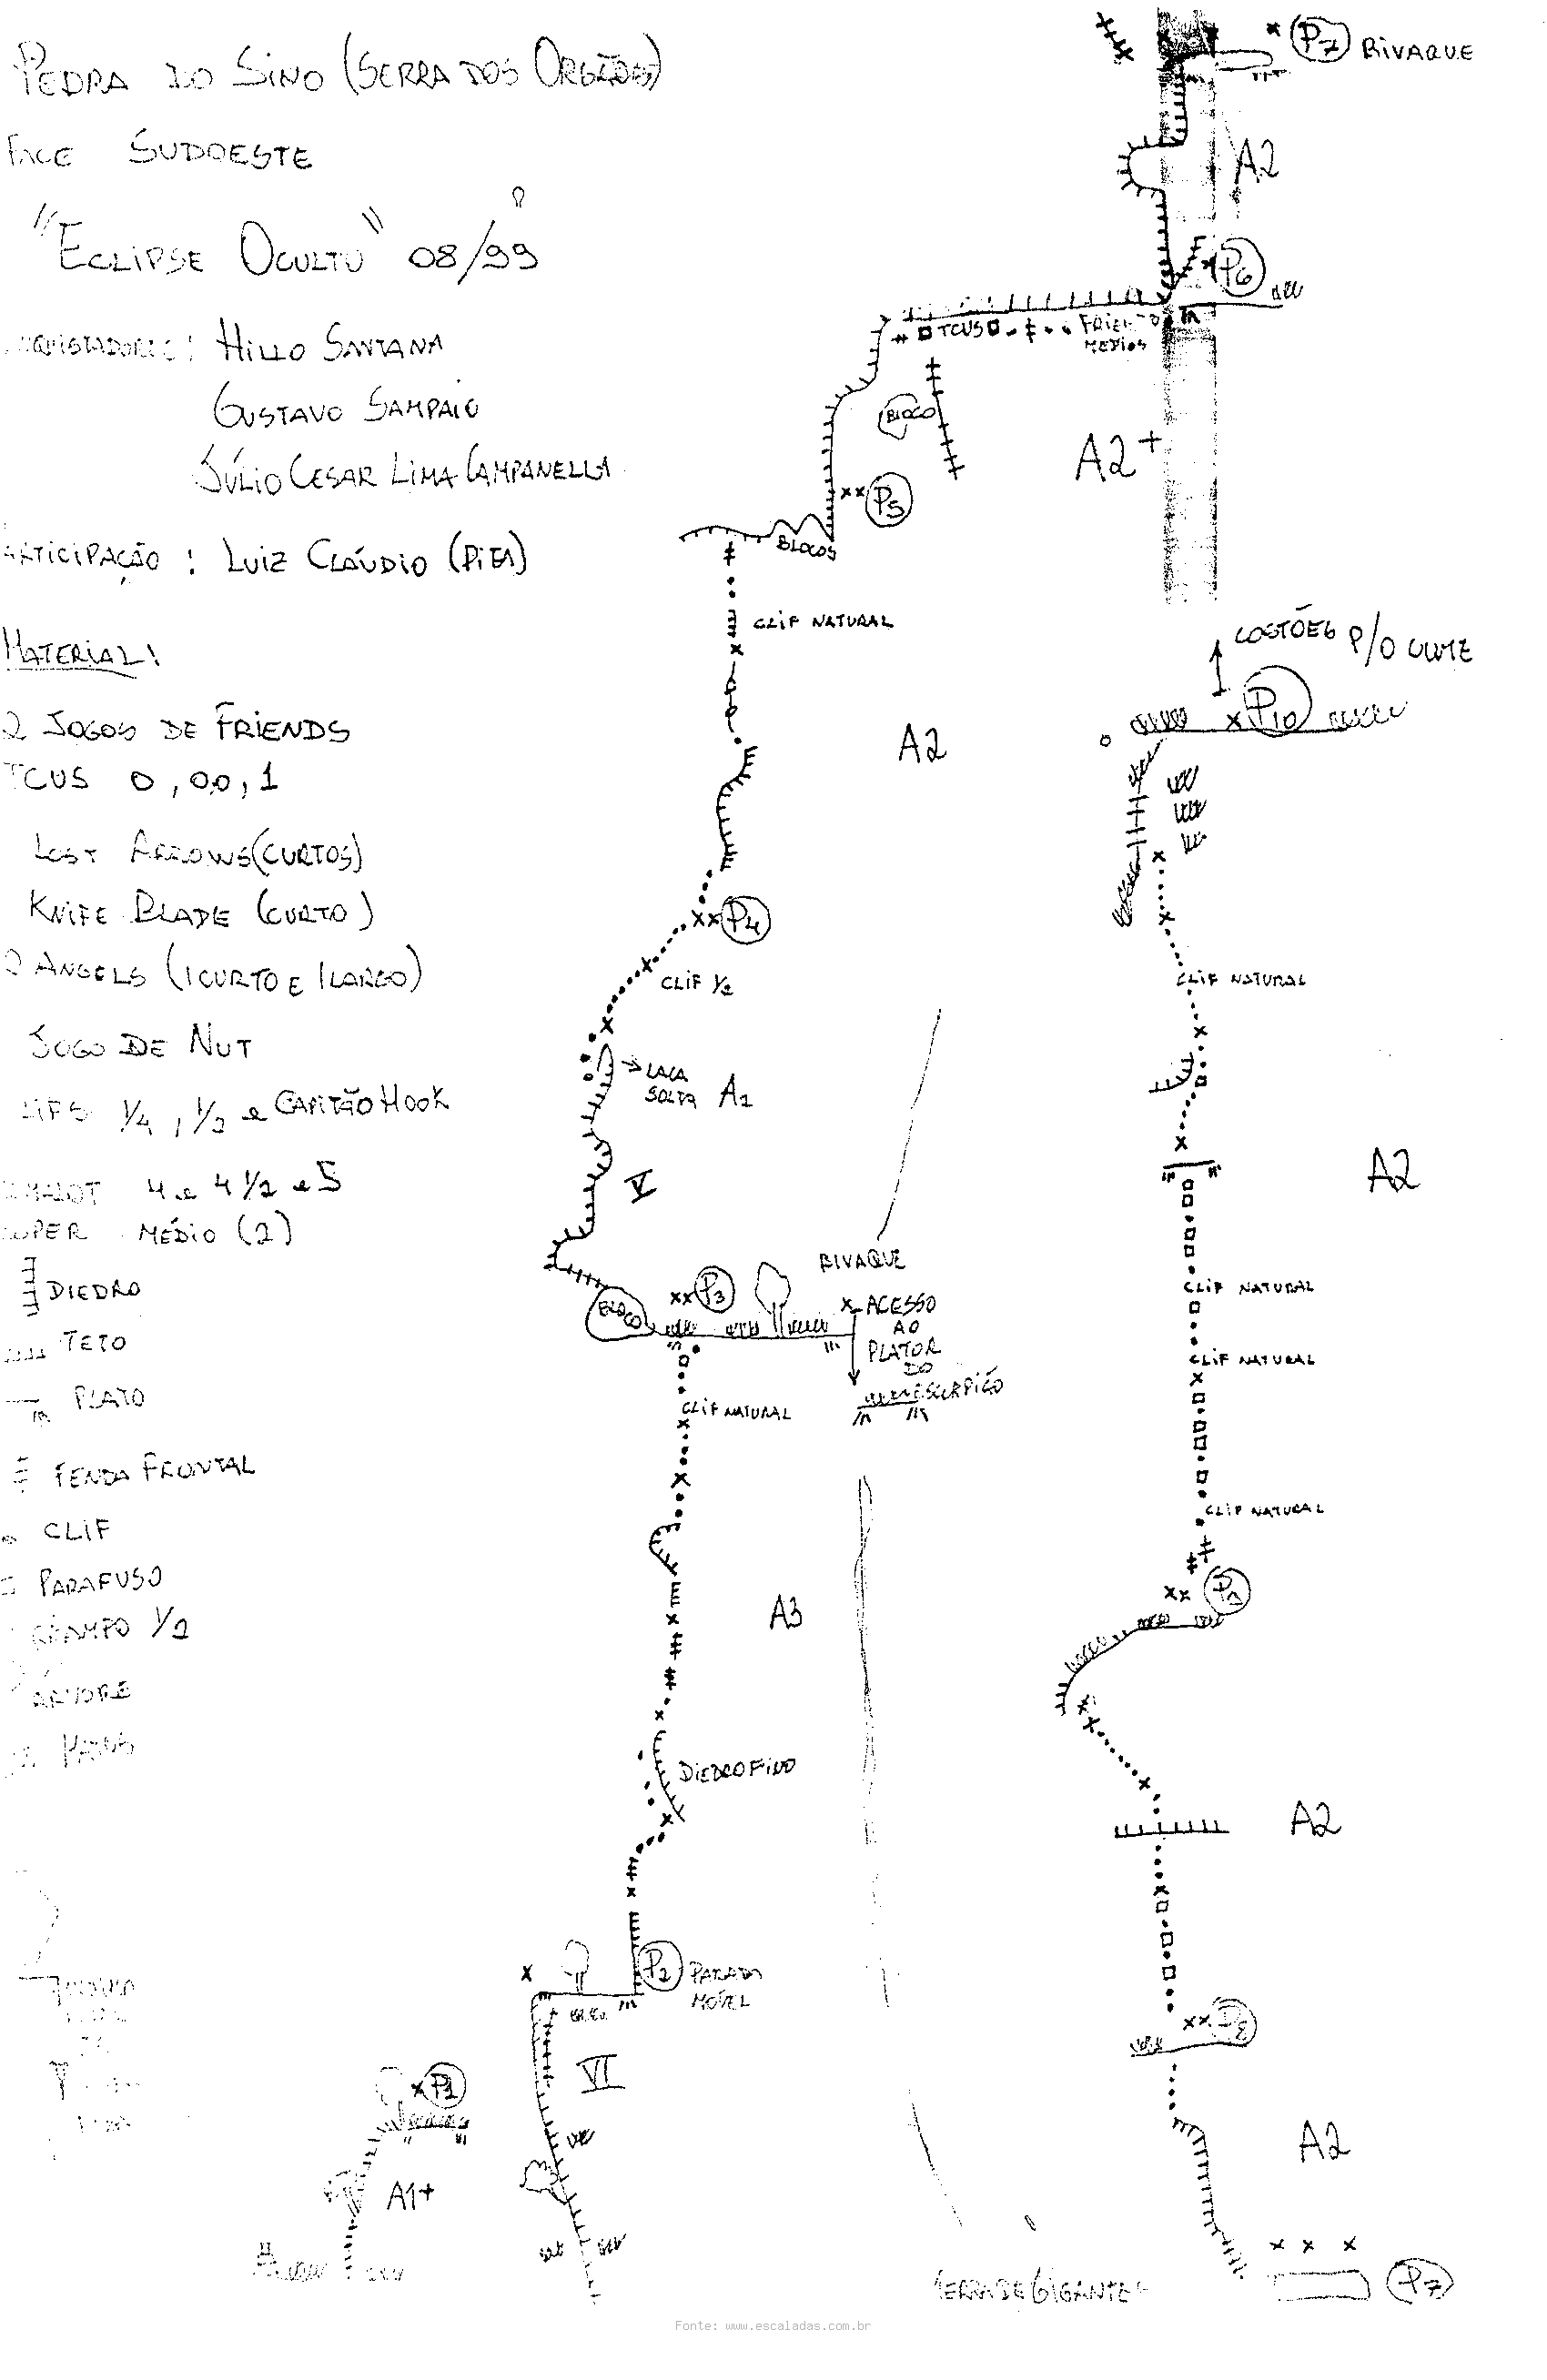 PEDRA DO SINO (SERRA DOS ORGÃOS)
FACE SUDOESTE
"ECLIPSE OCULTO" 08/99
HILLO SANTANA
GUSTAVO SAMPAIO
JÚLIO CESAR LIMA CAMPANELLA
ARTICIPAÇÃO : LUIZ CLÁUDIO (PITA)
MATERIAL:
2 JOGOS DE FRIENDS
TCUS 0, 00, 1
LOST ARROWS (CURTOS)
KNIFE BLADE (CURTO)
2 ANGELS (1 CURTO E 1 LARGO)
JOGO DE NUT
LIFS 1/4, 1/2 e CAPITÃO HOOK
4 e 4 1/2 e 5
MÉDIO (2)
DIEDRO
TETO
PLATO
FENDA FRONTAL
CLIF
PARAFUSO
GRAMPO 1/2
ARVORE
P7 BIVAQUE
A2
P6
TCUS
FRIENDS
MEDIOS
BLOCO
A2+
P5
BLOCOS
CLIF NATURAL
A2
P4
CLIF 1/2
LACA
SOLTA
A2
V
BIVAQUE
P3
BLOCO
ACESSO
AO
PLATOR
DO
ESCORPIÃO
CLIF NATURAL
A3
DIEDRO FINO
P2 PARADA
MÓVEL
VI
P1
A1+
COSTÕES P/O CUME
P10
CLIF NATURAL
A2
CLIF NATURAL
CLIF NATURAL
CLIF NATURAL
P9
A2
P8
A2
P7
SERRA DE GIGANTES
Fonte: www.escaladas.com.br